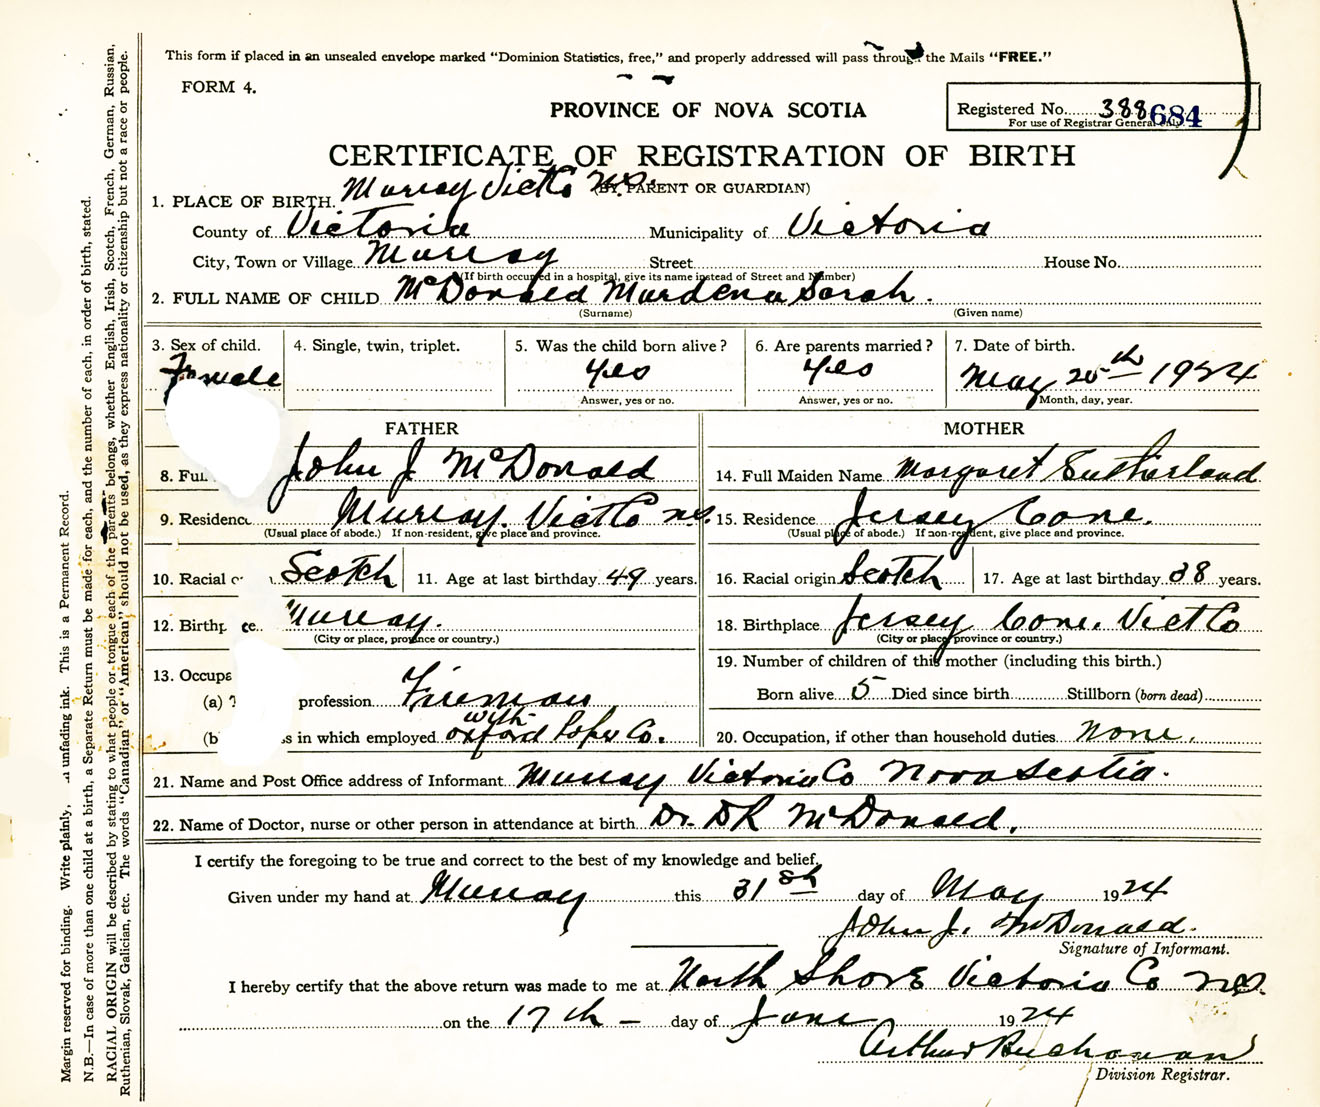 This form if placed in an unsealed envelope marked “Dominion Statistics, free,” and properly addressed will pass through the Mails “FREE.”
FORM 4.
PROVINCE OF NOVA SCOTIA
Registered No. 388 684
For use of Registrar General only.
CERTIFICATE OF REGISTRATION OF BIRTH
(BY PARENT OR GUARDIAN)
1. PLACE OF BIRTH. Murray Vict Co N.S.
County of Victoria Municipality of Victoria
City, Town or Village Murray Street House No.
(If birth occurred in a hospital, give its name instead of Street and Number)
2. FULL NAME OF CHILD McDonald Murdena Sarah.
(Surname) (Given name)
3. Sex of child. 4. Single, twin, triplet. 5. Was the child born alive? 6. Are parents married? 7. Date of birth.
Female yes yes May 25th 1924
Answer, yes or no. Answer, yes or no. Month, day, year.
FATHER MOTHER
8. Ful John J McDonald 14. Full Maiden Name Margaret Sutherland
9. Residence Murray. Vict Co N.S. 15. Residence Jersey Cove.
(Usual place of abode.) If non-resident, give place and province. (Usual place of abode.) If non-resident, give place and province.
10. Racial Scotch 11. Age at last birthday 49 years. 16. Racial origin Scotch 17. Age at last birthday 38 years.
12. Birthp ce Murray. 18. Birthplace Jersey Cove. Vict Co
(City or place, province or country.) (City or place, province or country.)
13. Occupa 19. Number of children of this mother (including this birth.)
(a) profession Fireman Born alive 5 Died since birth Stillborn (born dead)
with
(b s in which employed Oxford Co. 20. Occupation, if other than household duties none.
21. Name and Post Office address of Informant Murray Victoria Co Nova Scotia.
22. Name of Doctor, nurse or other person in attendance at birth Dr. DR McDonald.
I certify the foregoing to be true and correct to the best of my knowledge and belief.
Given under my hand at Murray this 31st day of May 1924
John J. McDonald.
Signature of Informant.
I hereby certify that the above return was made to me at North Shore Victoria Co N.S.
on the 17th – day of June 1924
Arthur Buchanan
Division Registrar.
Margin reserved for binding. Write plainly, unfading ink. This is a Permanent Record.
N.B.—In case of more than one child at a birth, a Separate Return must be made for each, and the number of each, in order of birth, stated.
RACIAL ORIGIN will be described by stating to what people or tongue each of the parents belongs, whether English, Irish, Scotch, French, German, Russian,
Ruthenian, Slovak, Galician, etc. The words “Canadian” or “American” should not be used, as they express nationality or citizenship but not a race or people.